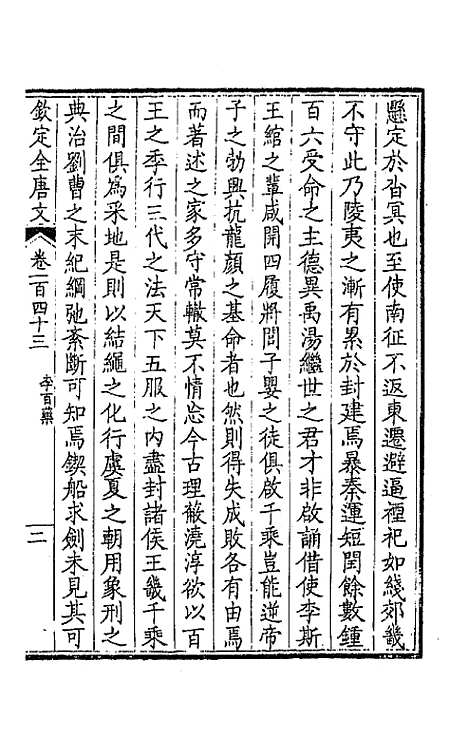 懸定於沓冥也至使南征不返東遷避逼禋祀如綫郊畿
不守此乃陵夷之漸有累於封建焉暴秦運短閏餘數鍾
百六受命之主德異禹湯繼世之君才非啟誦借使李斯
王綰之輩咸開四履將閭子嬰之徒俱啟千乘豈能逆帝
子之勃興抗龍顏之基命者也然則得失成敗各有由焉
而著述之家多守常轍莫不情忘今古理蔽澆淳欲以百
王之季行三代之法天下五服之內盡封諸侯王畿千乘
之間俱為采地是則以結繩之化行虞夏之朝用象刑之
典治劉曹之末紀綱弛紊斷可知焉鍥船求劍未見其可
欽定全唐文 卷一百四十三 李百藥 二